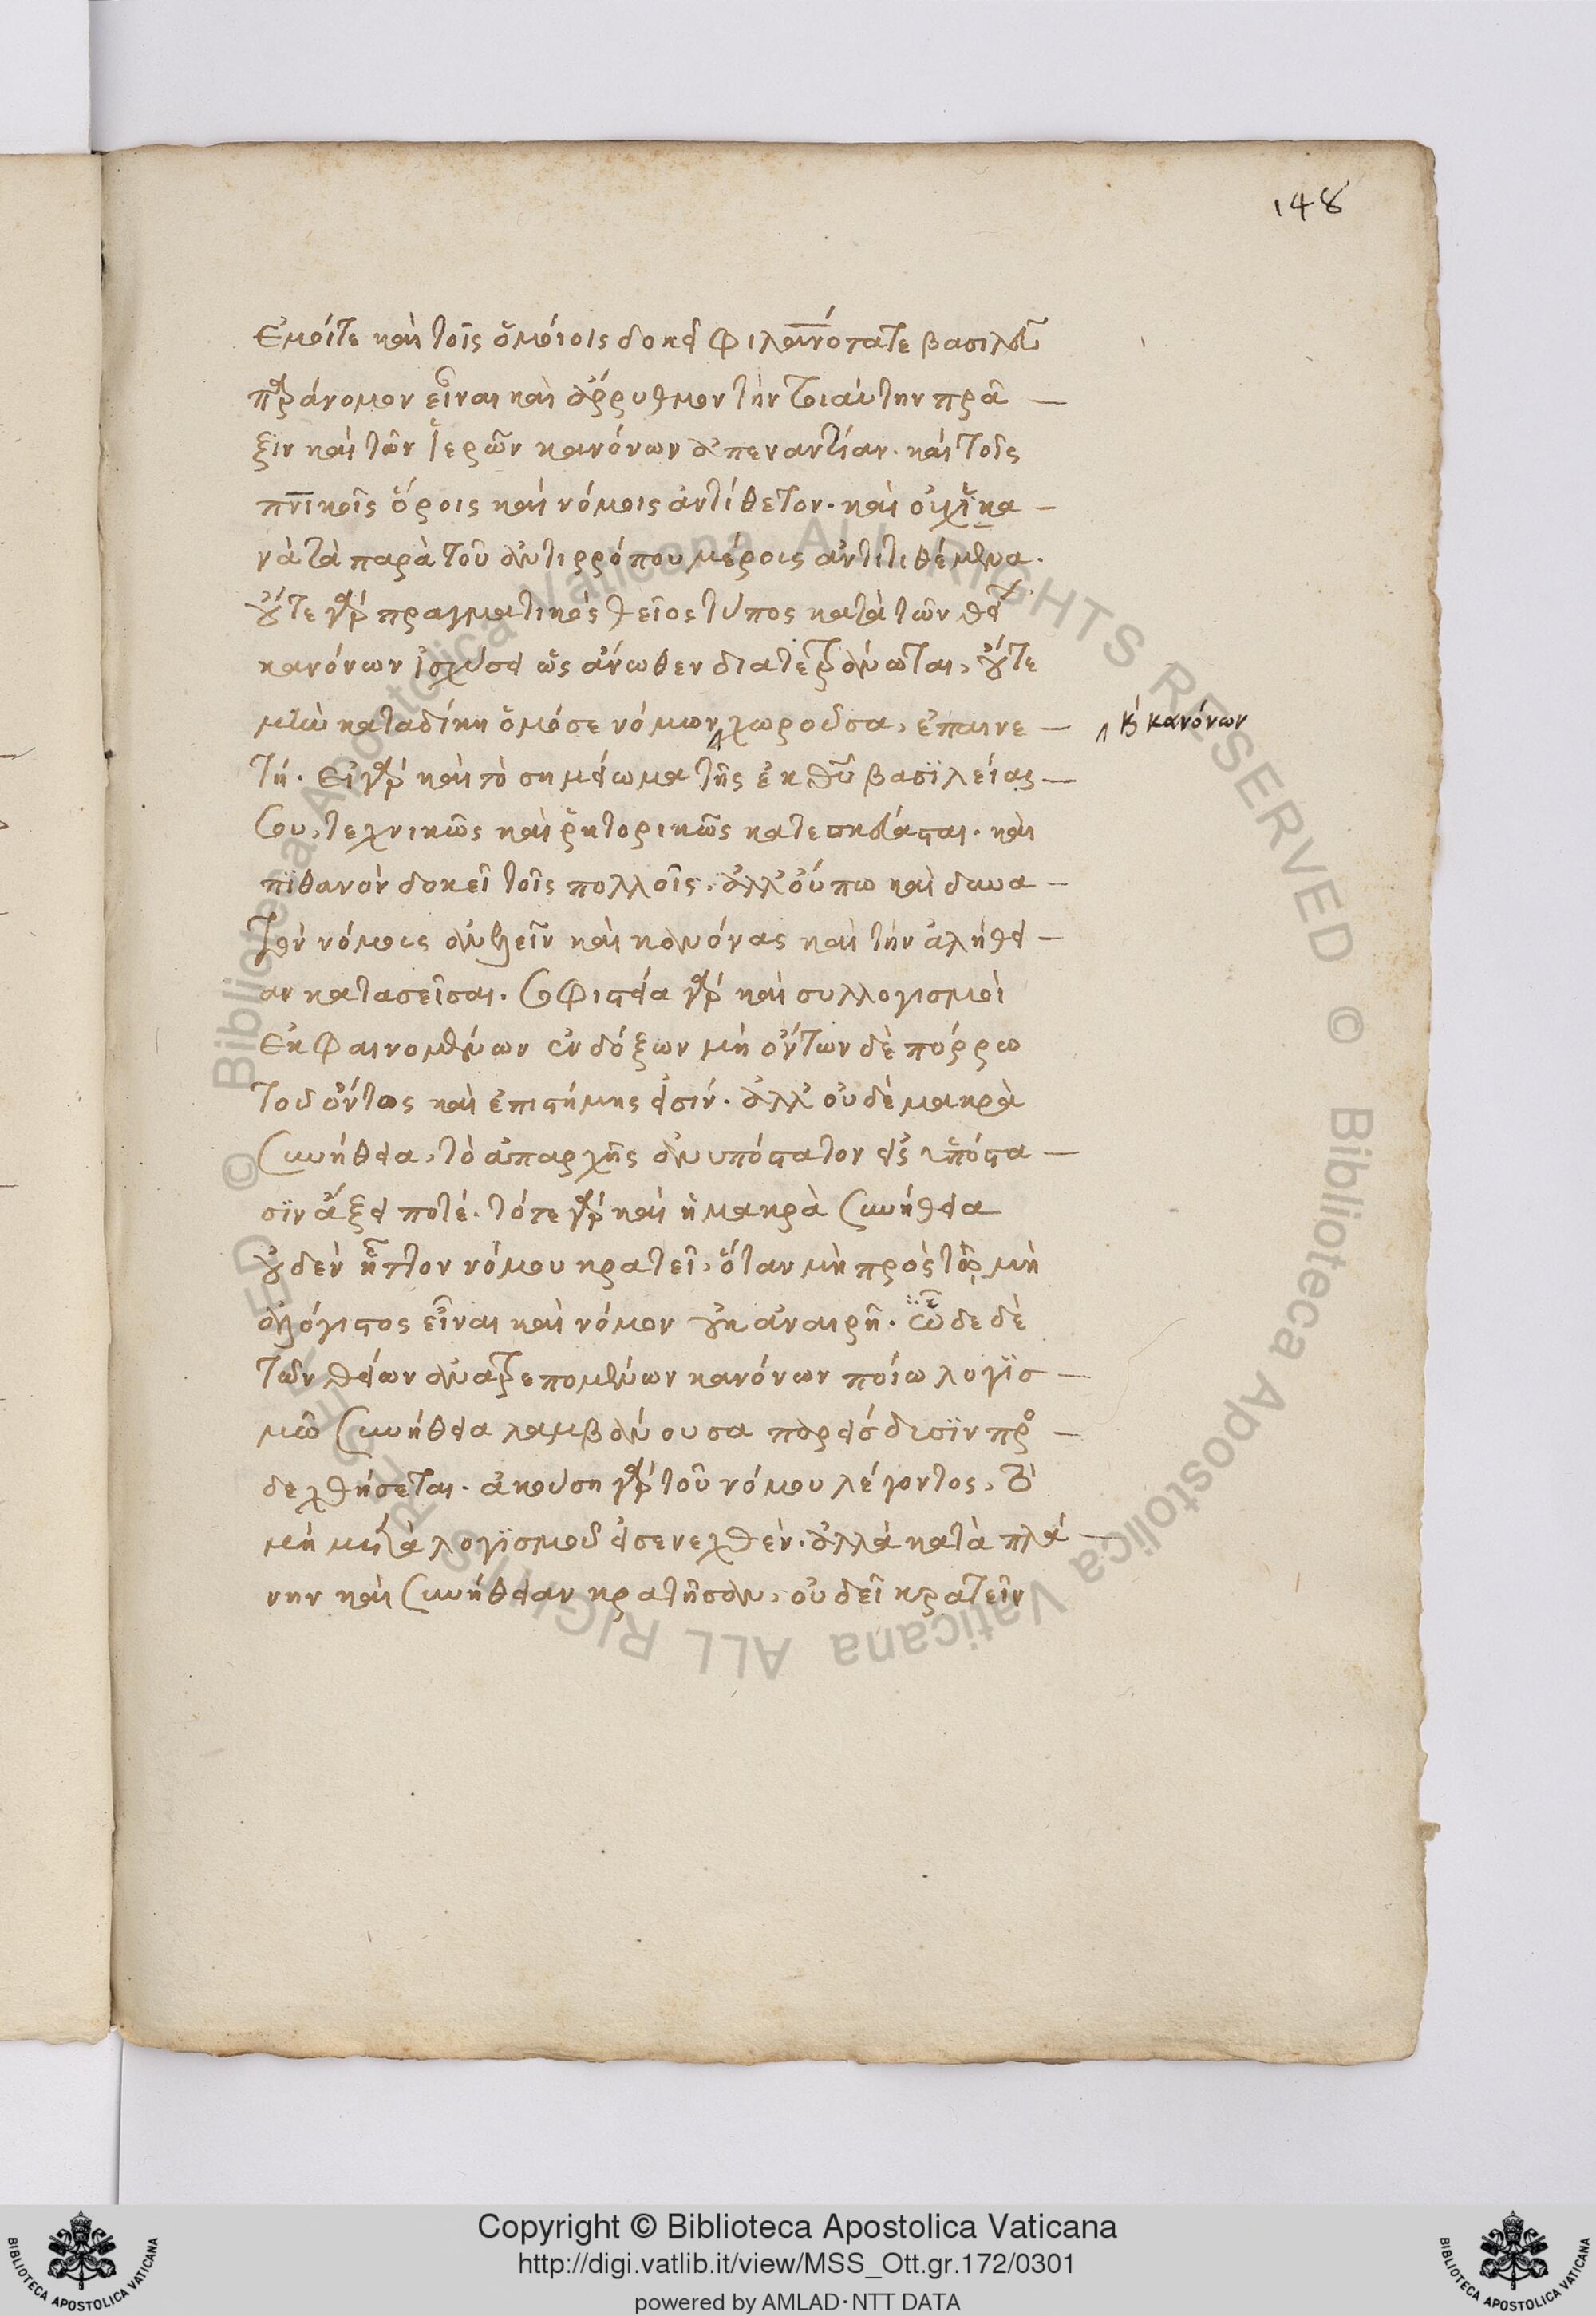 148
Ἐμοίτε καὶ τοῖς ὁμοίοις δοκεῖ φιλανότατε βασιλεῦ
παράνομον εἶναι καὶ ἄρρυθμον τὴν τοιαύτην πρᾶ —
ξιν καὶ τῶν ἱερῶν κανόνων ἀπεναντίαν. καὶ τοῖς
πνικοῖς ὅροις καὶ νόμοις ἀντίθετον. καὶ οὐχ ἱκα —
νὰ τὰ παρὰ τοῦ ἀντιρρόπου μέρους ἀντιτιθέμενα.
οὔτε γὰρ πραγματικὸς θεῖος τύπος κατὰ τῶν θεί
κανόνων ἰσχύσει ὡς ἄνωθεν διατετράνωται, οὔτε
μὴν καταδίκη ὁμόσε νόμων χωροῦσα, ἐπαινε —
κ κανόνων
τή. εἰ γὰρ καὶ τὸ σημείωμα τῆς ἐκ θῦ βασιλείας —
σου, τεχνικῶς καὶ ῥητορικῶς κατεσκεύασται. καὶ
πιθανὸν δοκεῖ τοῖς πολλοῖς. ἀλλ' οὔπω καὶ δυνα —
τὸν νόμους ἀνελεῖν καὶ κανόνας καὶ τὴν ἀλήθει —
αν κατασεῖσαι. σοφιστεία γὰρ καὶ συλλογισμοὶ
ἐκ φαινομένων ἐνδόξων μὴ ὄντων δὲ πόρρω
τοῦ ὄντως καὶ ἐπιστήμης εἰσίν. ἀλλ' οὐδὲ μακρὰ
συνήθεια, τὸ ἀπαρχῆς ἀνυπόστατον εἰς ὑπόστα —
σιν ἄξει ποτέ. τότε γὰρ καὶ ἡ μακρὰ συνήθεια
οὐδὲν ἧττον νόμου κρατεῖ, ὅταν μὴ πρὸς τῷ μὴ
ἀλόγιστος εἶναι καὶ νόμον οὐκ ἀναιρῇ. ὧδε δὲ
τῶν θείων ἀνατρεπομένων κανόνων ποίω λογισ —
μῶ συνήθεια λαμβάνουσα παρείσδυσιν προ —
δεχθήσεται. ἀκούση γὰρ τοῦ νόμου λέγοντος, τὸ
μὴ μετὰ λογισμοῦ εἰσενεχθὲν. ἀλλὰ κατὰ πλά —
νην καὶ συνήθειαν κρατῆσαν, οὐ δεῖ κρατεῖν
Copyright © Biblioteca Apostolica Vaticana
http://digi.vatlib.it/view/MSS_Ott.gr.172/0301
powered by AMLAD·NTT DATA